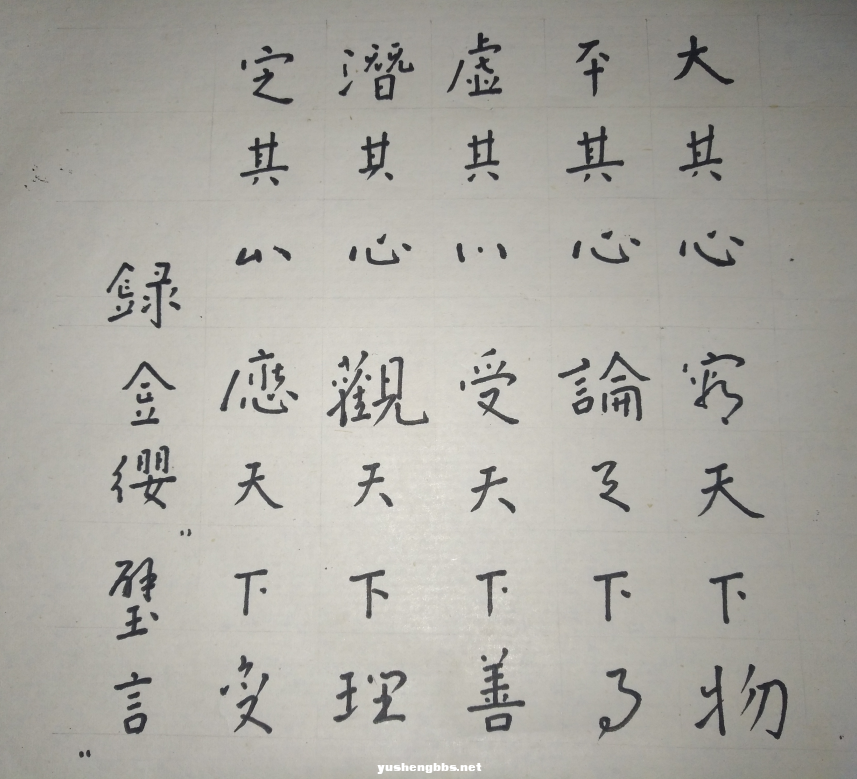 大其心容天下物
平其心論天下事
虛其心受天下善
潛其心觀天下理
定其心應天下变
録金纓"璧言"
yushengbbs.net